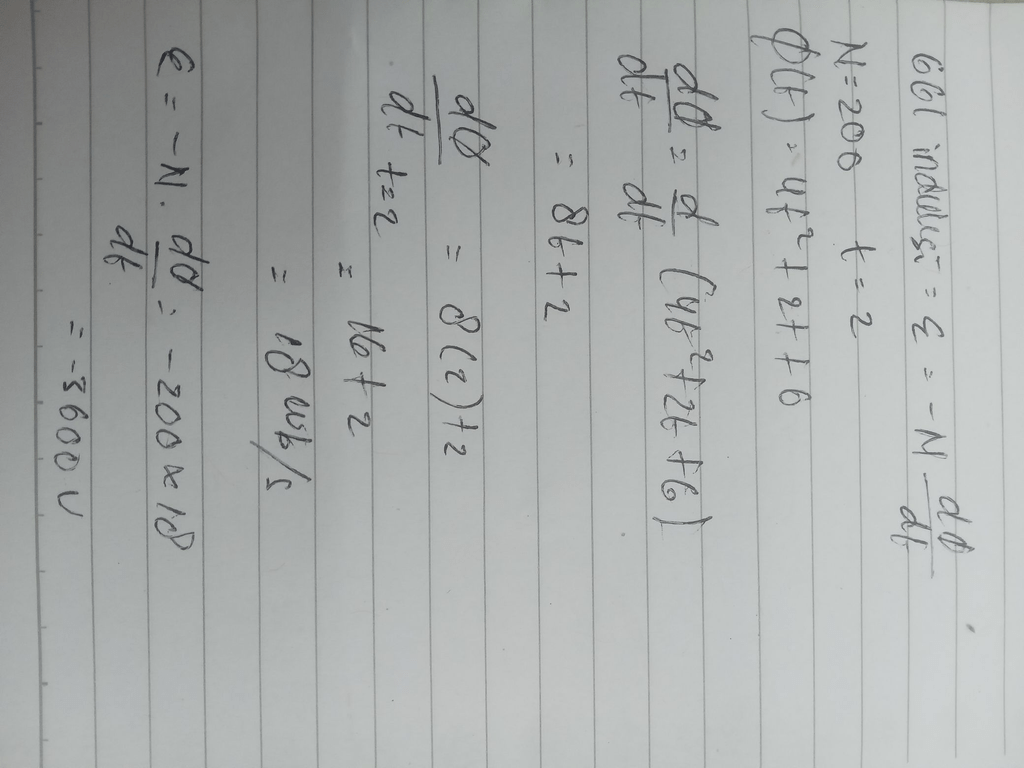 GGL induksi = ε = -N dØ/dt
N = 200 t = 2
Ø(t) = 4t² + 2t + 6
dØ/dt = d/dt (4t² + 2t + 6)
= 8t + 2
dØ/dt t=2 = 8(2) + 2
= 16 + 2
= 18 wb/s
ε = -N. dØ/dt = -200 x 18
= -3600 V